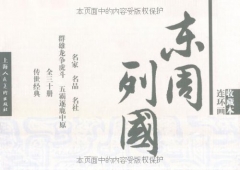 本页面中的内容受版权保护
东周
列國
收藏本
连环画
名家 名品 名社
群雄龙争虎斗 五霸逐鹿中原
全三十册
传世经典
上海人民美术出版社
本页面中的内容受版权保护